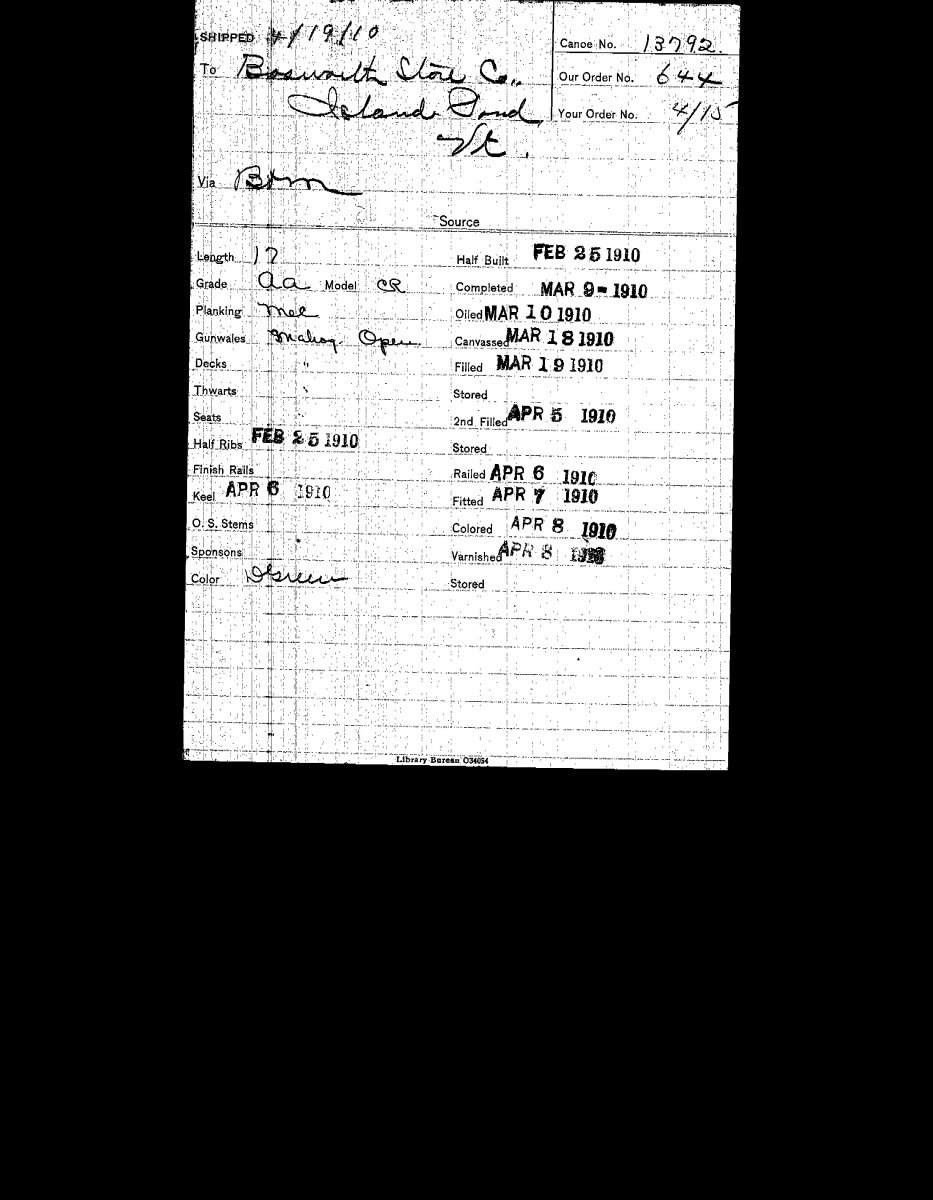 SHIPPED 4/19/10
Canoe No. 13792.
To Bosworth Store Co.,
Our Order No. 644
Island Pond,
Your Order No. 4/15
Vt.
Via B&M
Source
Length 17
Half Built FEB 25 1910
Grade aa Model CR
Completed MAR 9 - 1910
Planking
Oiled MAR 10 1910
Gunwales Mahog. Open
Canvassed MAR 18 1910
Decks "
Filled MAR 19 1910
Thwarts "
Stored
Seats "
2nd Filled APR 5 1910
Half Ribs FEB 25 1910
Stored
Finish Rails
Railed APR 6 1910
Keel APR 6 1910
Fitted APR 7 1910
O. S. Stems
Colored APR 8 1910
Sponsons
Varnished APR 8 1910
Color D Green
Stored
Library Bureau O34054